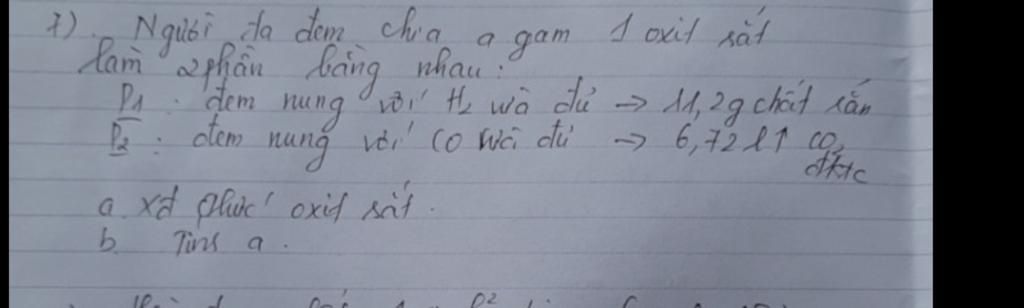 7). Người ta đem chia a gam 1 oxit sắt
làm 2 phần bằng nhau:
P1: đem nung với H2 vừa đủ → 11,2g chất rắn
P2: đem nung với CO vừa đủ → 6,72 l↑ CO2
đktc
a. xđ công thức oxit sắt.
b. Tính a.